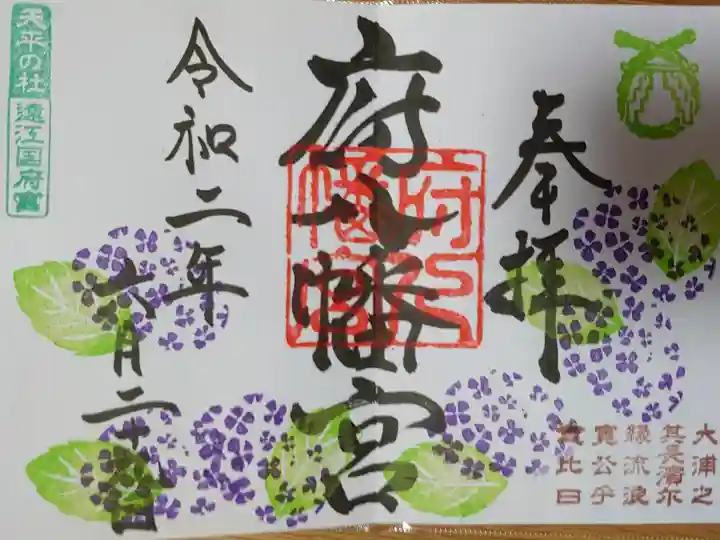 奉拝
府八幡宮
令和二年
六月二十
天平の社
遠江国府宮
府八
幡宮
大浦之
其長濱尓
縁流浪
寛公乎
比日